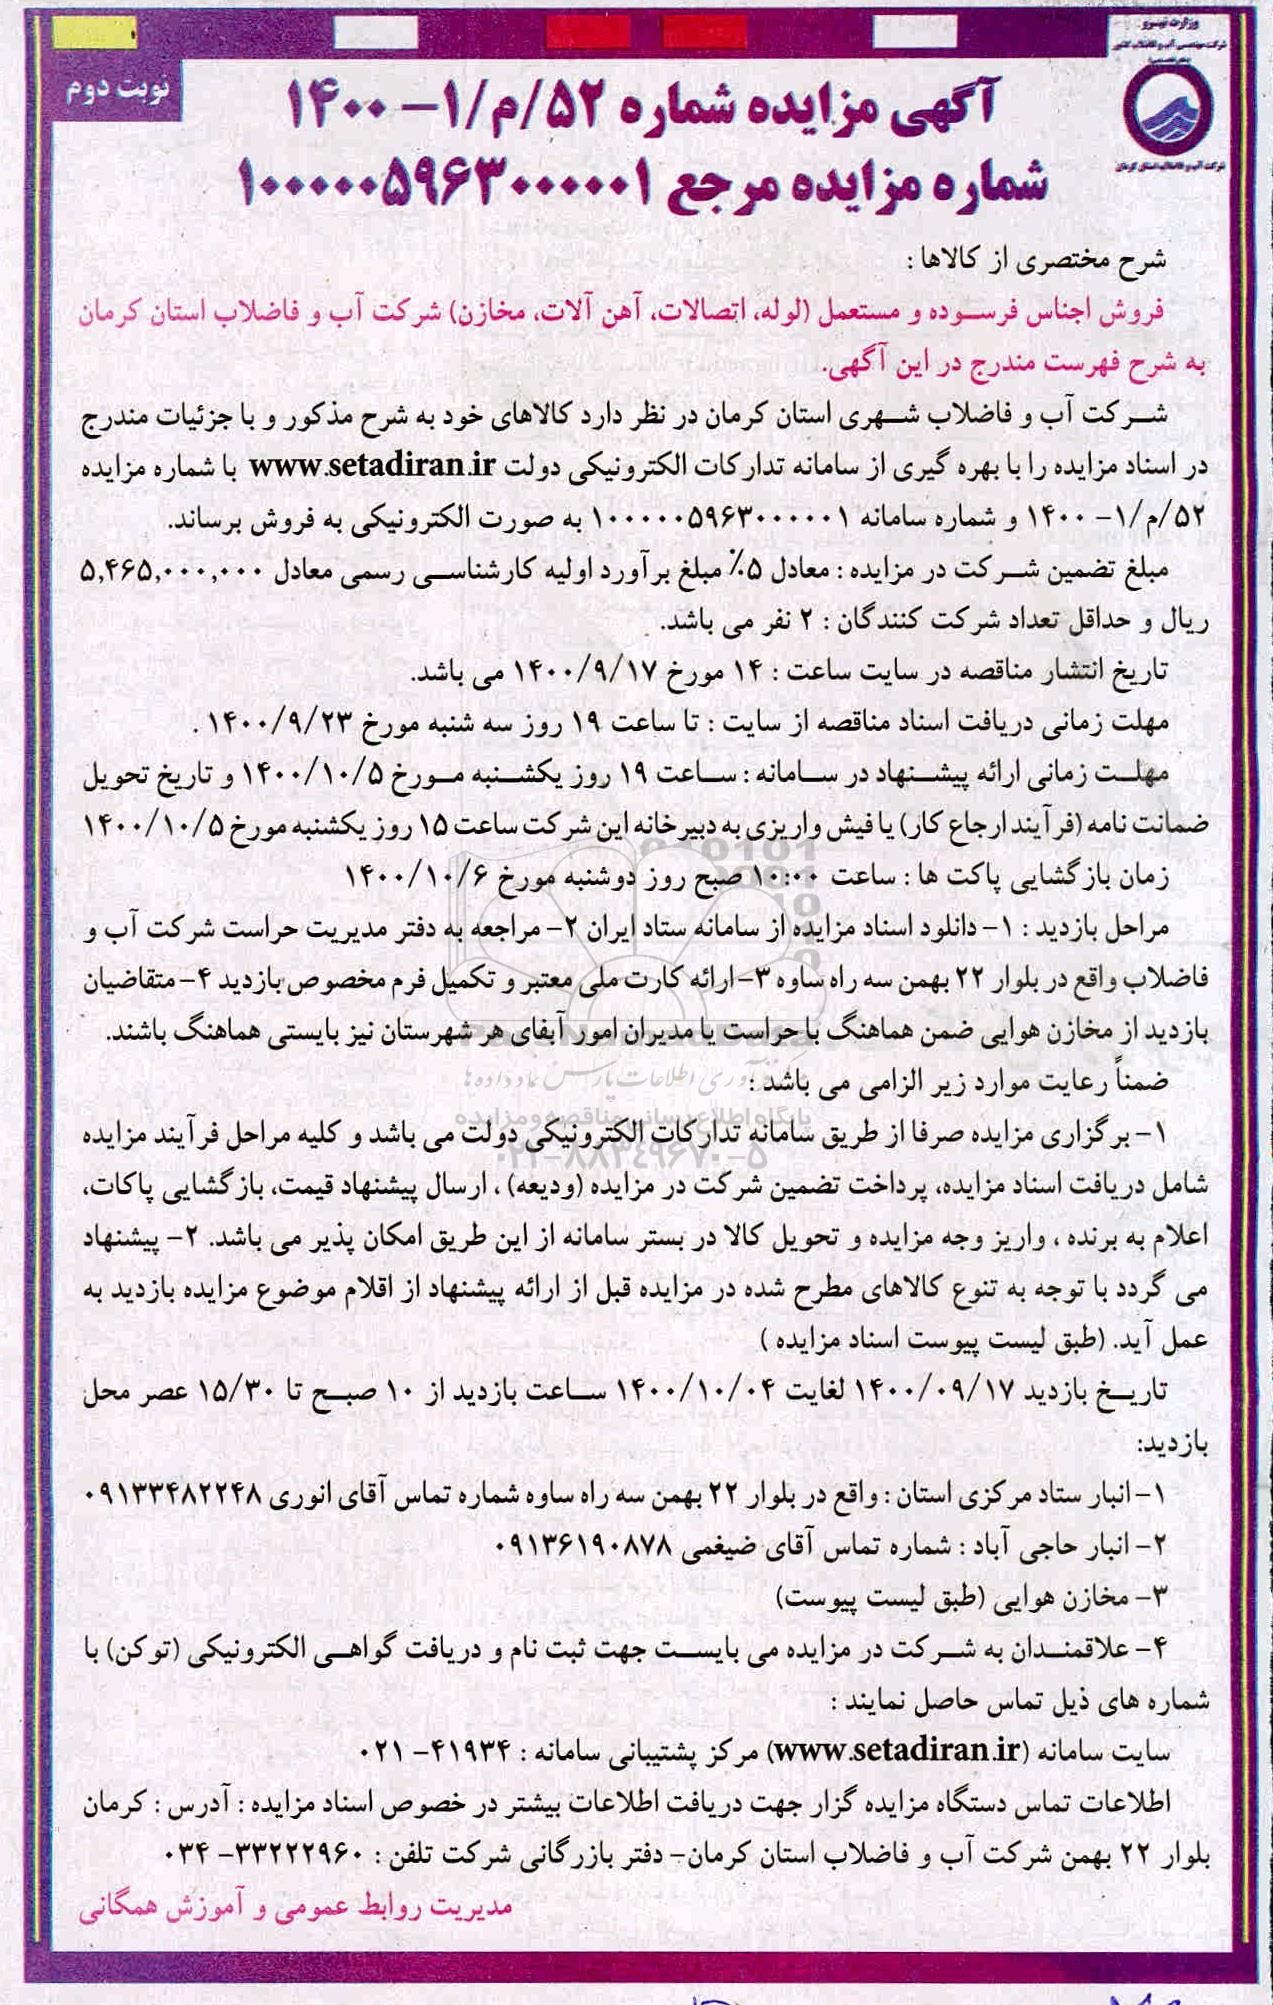 وزارت نیرو
نوبت دوم
آگهی مزایده شماره ۵۲/م/۱- ۱۴۰۰
شماره مزایده مرجع ۱۰۰۰۰۰۵۹۶۳۰۰۰۰۰۱
شرح مختصری از کالاها :
فروش اجناس فرسوده و مستعمل (لوله، اتصالات، آهن آلات، مخازن) شرکت آب و فاضلاب استان کرمان
به شرح فهرست مندرج در این آگهی.
شرکت آب و فاضلاب شهری استان کرمان در نظر دارد کالاهای خود به شرح مذکور و با جزئیات مندرج
در اسناد مزایده را با بهره گیری از سامانه تدارکات الکترونیکی دولت www.setadiran.ir با شماره مزایده
۵۲/م/۱- ۱۴۰۰ و شماره سامانه ۱۰۰۰۰۰۵۹۶۳۰۰۰۰۰۱ به صورت الکترونیکی به فروش برساند.
مبلغ تضمین شرکت در مزایده : معادل ۵٪ مبلغ برآورد اولیه کارشناسی رسمی معادل ۵,۴۶۵,۰۰۰,۰۰۰
ریال و حداقل تعداد شرکت کنندگان : ۲ نفر می باشد.
تاریخ انتشار مناقصه در سایت ساعت : ۱۴ مورخ ۱۴۰۰/۹/۱۷ می باشد.
مهلت زمانی دریافت اسناد مناقصه از سایت : تا ساعت ۱۹ روز سه شنبه مورخ ۱۴۰۰/۹/۲۳ .
مهلت زمانی ارائه پیشنهاد در سامانه : ساعت ۱۹ روز یکشنبه مورخ ۱۴۰۰/۱۰/۵ و تاریخ تحویل
ضمانت نامه (فرآیند ارجاع کار) یا فیش واریزی به دبیرخانه این شرکت ساعت ۱۵ روز یکشنبه مورخ ۱۴۰۰/۱۰/۵
زمان بازگشایی پاکت ها : ساعت ۱۰:۰۰ صبح روز دوشنبه مورخ ۱۴۰۰/۱۰/۶
مراحل بازدید : ۱- دانلود اسناد مزایده از سامانه ستاد ایران ۲- مراجعه به دفتر مدیریت حراست شرکت آب و
فاضلاب واقع در بلوار ۲۲ بهمن سه راه ساوه ۳-ارائه کارت ملی معتبر و تکمیل فرم مخصوص بازدید ۴-متقاضیان
بازدید از مخازن هوایی ضمن هماهنگ با حراست یا مدیران امور آبفای هر شهرستان نیز بایستی هماهنگ باشند.
ضمناً رعایت موارد زیر الزامی می باشد :
پایگاه اطلاع رسانی مناقصه و مزایده
۱- برگزاری مزایده صرفا از طریق سامانه تدارکات الکترونیکی دولت می باشد و کلیه مراحل فرآیند مزایده
۰۲۱-۸۸۳۴۹۶۷۰-۵
شامل دریافت اسناد مزایده، پرداخت تضمین شرکت در مزایده (ودیعه) ، ارسال پیشنهاد قیمت، بازگشایی پاکات،
اعلام به برنده ، واریز وجه مزایده و تحویل کالا در بستر سامانه از این طریق امکان پذیر می باشد. ۲- پیشنهاد
می گردد با توجه به تنوع کالاهای مطرح شده در مزایده قبل از ارائه پیشنهاد از اقلام موضوع مزایده بازدید به
عمل آید. (طبق لیست پیوست اسناد مزایده )
تاریخ بازدید ۱۴۰۰/۰۹/۱۷ لغایت ۱۴۰۰/۱۰/۰۴ ساعت بازدید از ۱۰ صبح تا ۱۵/۳۰ عصر محل
بازدید:
۱-انبار ستاد مرکزی استان : واقع در بلوار ۲۲ بهمن سه راه ساوه شماره تماس آقای انوری ۰۹۱۳۳۴۸۲۲۴۸
۲- انبار حاجی آباد : شماره تماس آقای ضیغمی ۰۹۱۳۶۱۹۰۸۷۸
۳- مخازن هوایی (طبق لیست پیوست)
۴- علاقمندان به شرکت در مزایده می بایست جهت ثبت نام و دریافت گواهی الکترونیکی (توکن) با
شماره های ذیل تماس حاصل نمایند :
سایت سامانه (www.setadiran.ir) مرکز پشتیبانی سامانه : ۴۱۹۳۴- ۰۲۱
اطلاعات تماس دستگاه مزایده گزار جهت دریافت اطلاعات بیشتر در خصوص اسناد مزایده : آدرس : کرمان
بلوار ۲۲ بهمن شرکت آب و فاضلاب استان کرمان- دفتر بازرگانی شرکت تلفن : ۳۳۲۲۲۹۶۰- ۰۳۴
مدیریت روابط عمومی و آموزش همگانی